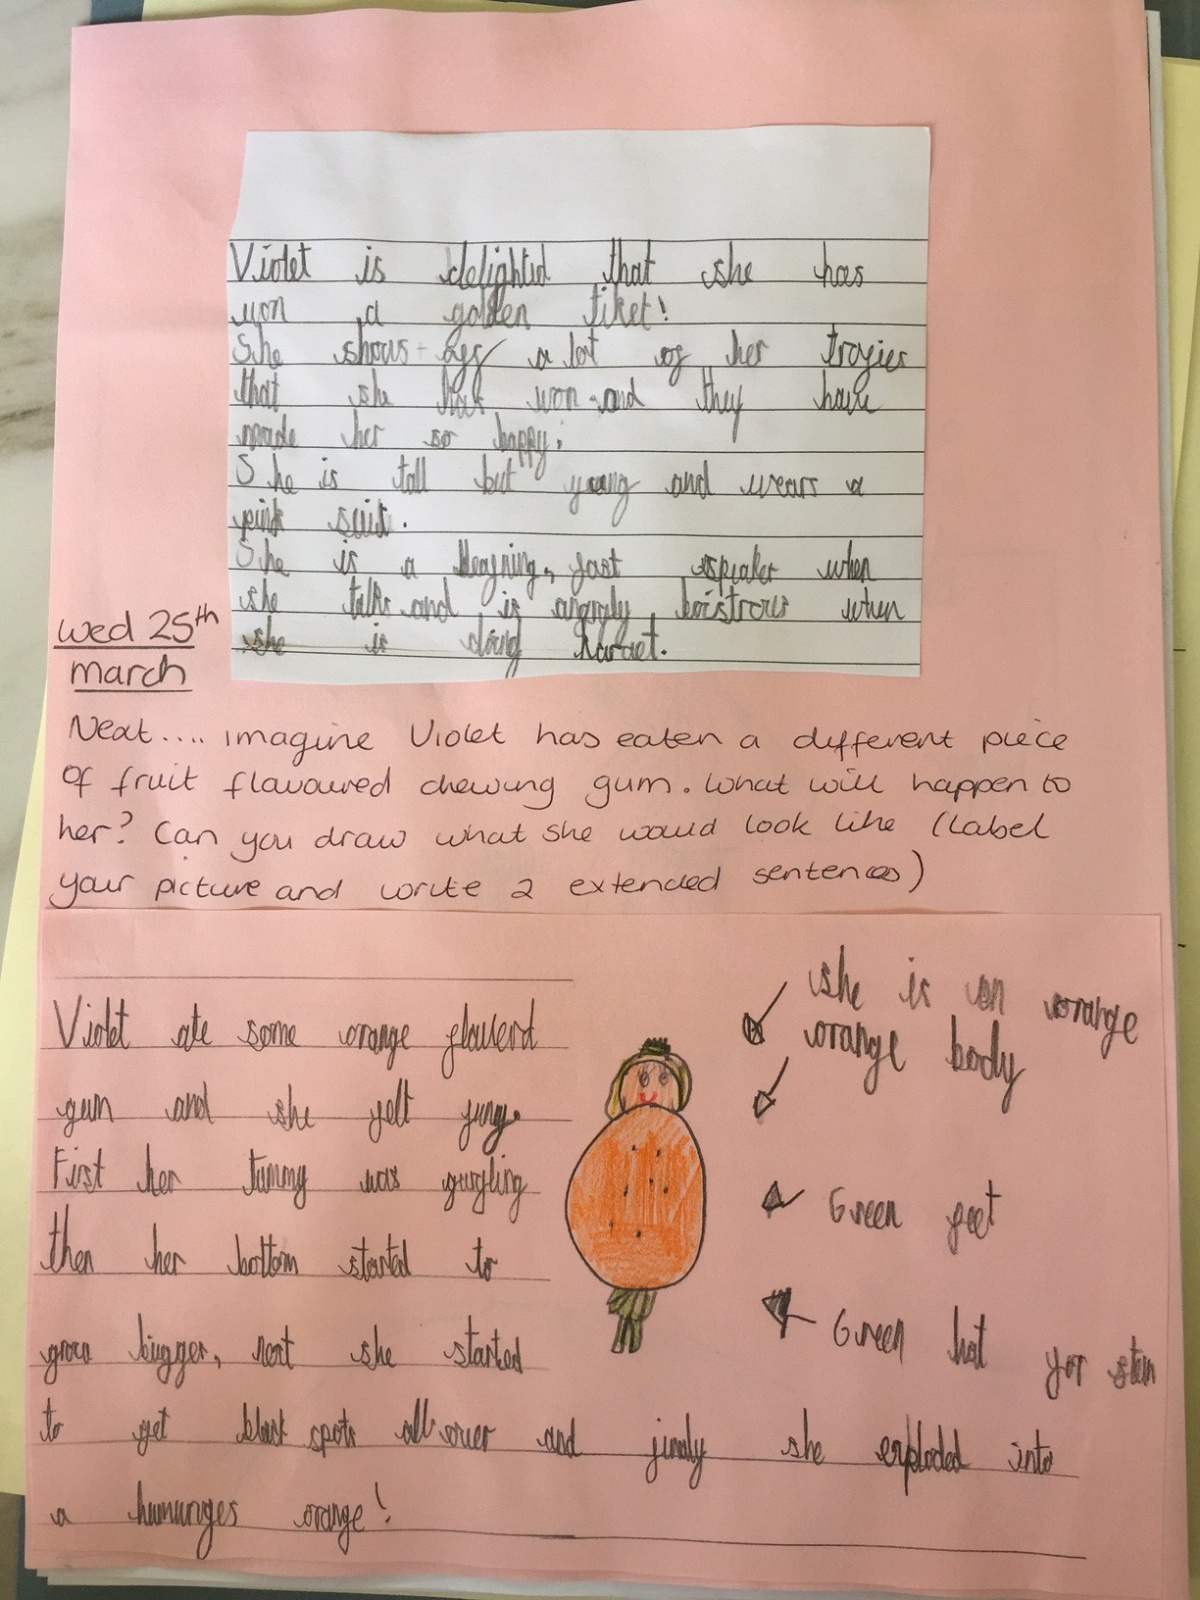 Violet is delighted that she has
won a golden tiket!
She shows-off a lot of her trofies
that she has won and they have
made her so happy.
She is tall but young and wears a
pink suit.
She is a deafning, fast speaker when
she talks and is angryly, boistrous when
she is doing karaet.
Wed 25th
March
Next.... imagine Violet has eaten a different piece
of fruit flavoured chewing gum. What will happen to
her? Can you draw what she would look like (label
your picture and write 2 extended sentences)
she is an orange
orange body
Green feet
Green hat for stem
Violet ate some orange flauerd
gum and she felt funy.
First her tummy was gurgling
then her bottom started to
grow bigger, next she started
to get black spots all over and finaly she exploded into
a humunges orange!